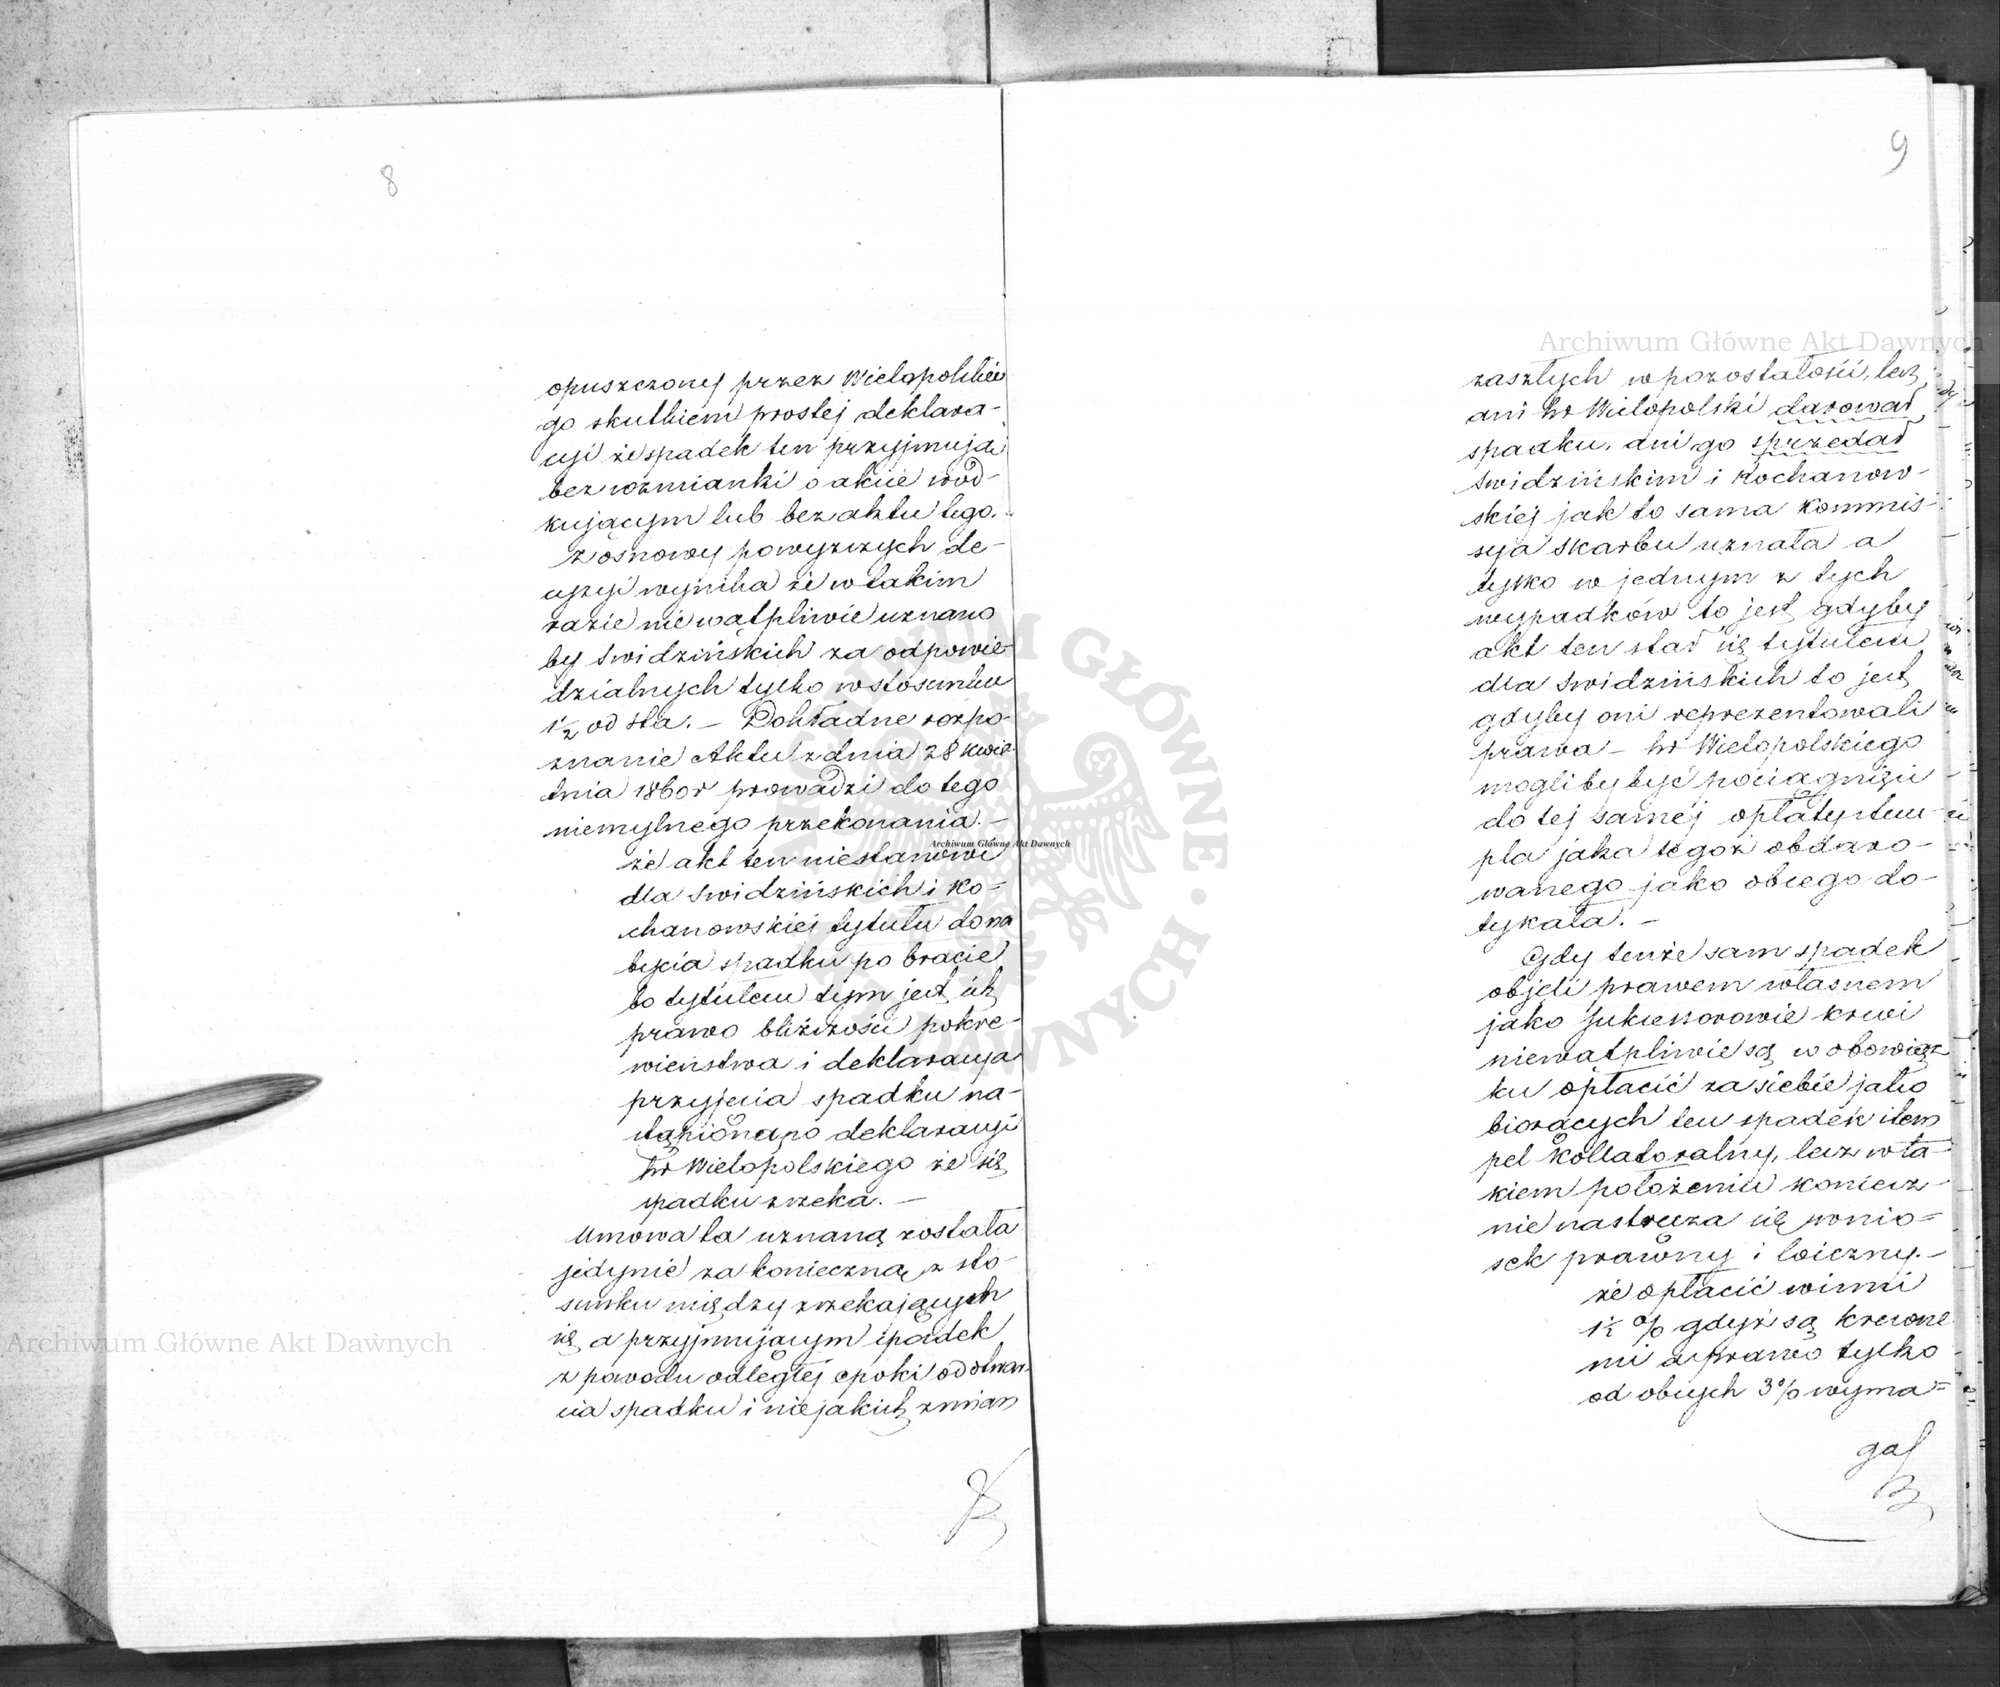 8
opuszczony przez Wielopolskie
go skutkiem prostej deklara-
cyi że spadek ten przyjmują
bez wzmianki o akcie
kującym lub bez aktu tego.
z osnowy powyższych de-
cyzyi wynika że w takim
razie niewątpliwie uznano
by Swidzińskich za odpowie-
dzialnych tylko w stosunku
1½ od sta. — Dokładne rozpo-
znanie Aktu z dnia 28 Kwie-
tnia 1860 r prowadzi do tego
niemylnego przekonania. —
że akt ten niestanowi
dla Swidzińskich i Ko-
chanowskiej tytułu do na
bycia spadku po bracie
bo tytułem tym jest ich
prawo bliższości pokre-
wieństwa i deklaracya
przyjęcia spadku na-
stąpiona po deklaracyi
hr Wielopolskiego że się
spadku zrzeka. —
Umowa ta uznaną została
jedynie za konieczną z sto-
sunku między zrzekającym
się a przyjmującym spadek
z powodu odległej epoki od otwar-
cia spadku i niejakich zmian
9
zaszłych w pozostałości, lecz
ani hr Wielopolski darował
spadku, ani go sprzedał
Swidzińskim i Kochanow-
skiej jak to sama Kommis-
syja Skarbu uznała a
tylko w jednym z tych
wypadków to jest gdyby
akt ten stał się tytułem
dla Swidzińskich to jest
gdyby oni reprezentowali
prawa — hr Wielopolskiego
mogliby być pociągnięci
do tej samej opłaty stem-
pla jaka tegoż obdaro-
wanego jako obcego do-
tykała. —
Gdy tenże sam spadek
objęli prawem własnem
jako sukcessorowie krwi
niewątpliwie są w obowiąz
ku opłacić za siebie jako
biorących ten spadek stem
pel kollateralny, lecz w ta-
kiem położeniu koniecz-
nie nastręcza się wnio=
sek prawny i loiczny. —
że opłacić winni
1½ % gdyż są krewne
mi a prawo tylko
od obcych 3% wyma=
ga
Archiwum Główne Akt Dawnych
Archiwum Główne Akt Dawnych
Archiwum Główne Akt Dawnych
ARCHIWUM GŁÓWNE AKT DAWNYCH